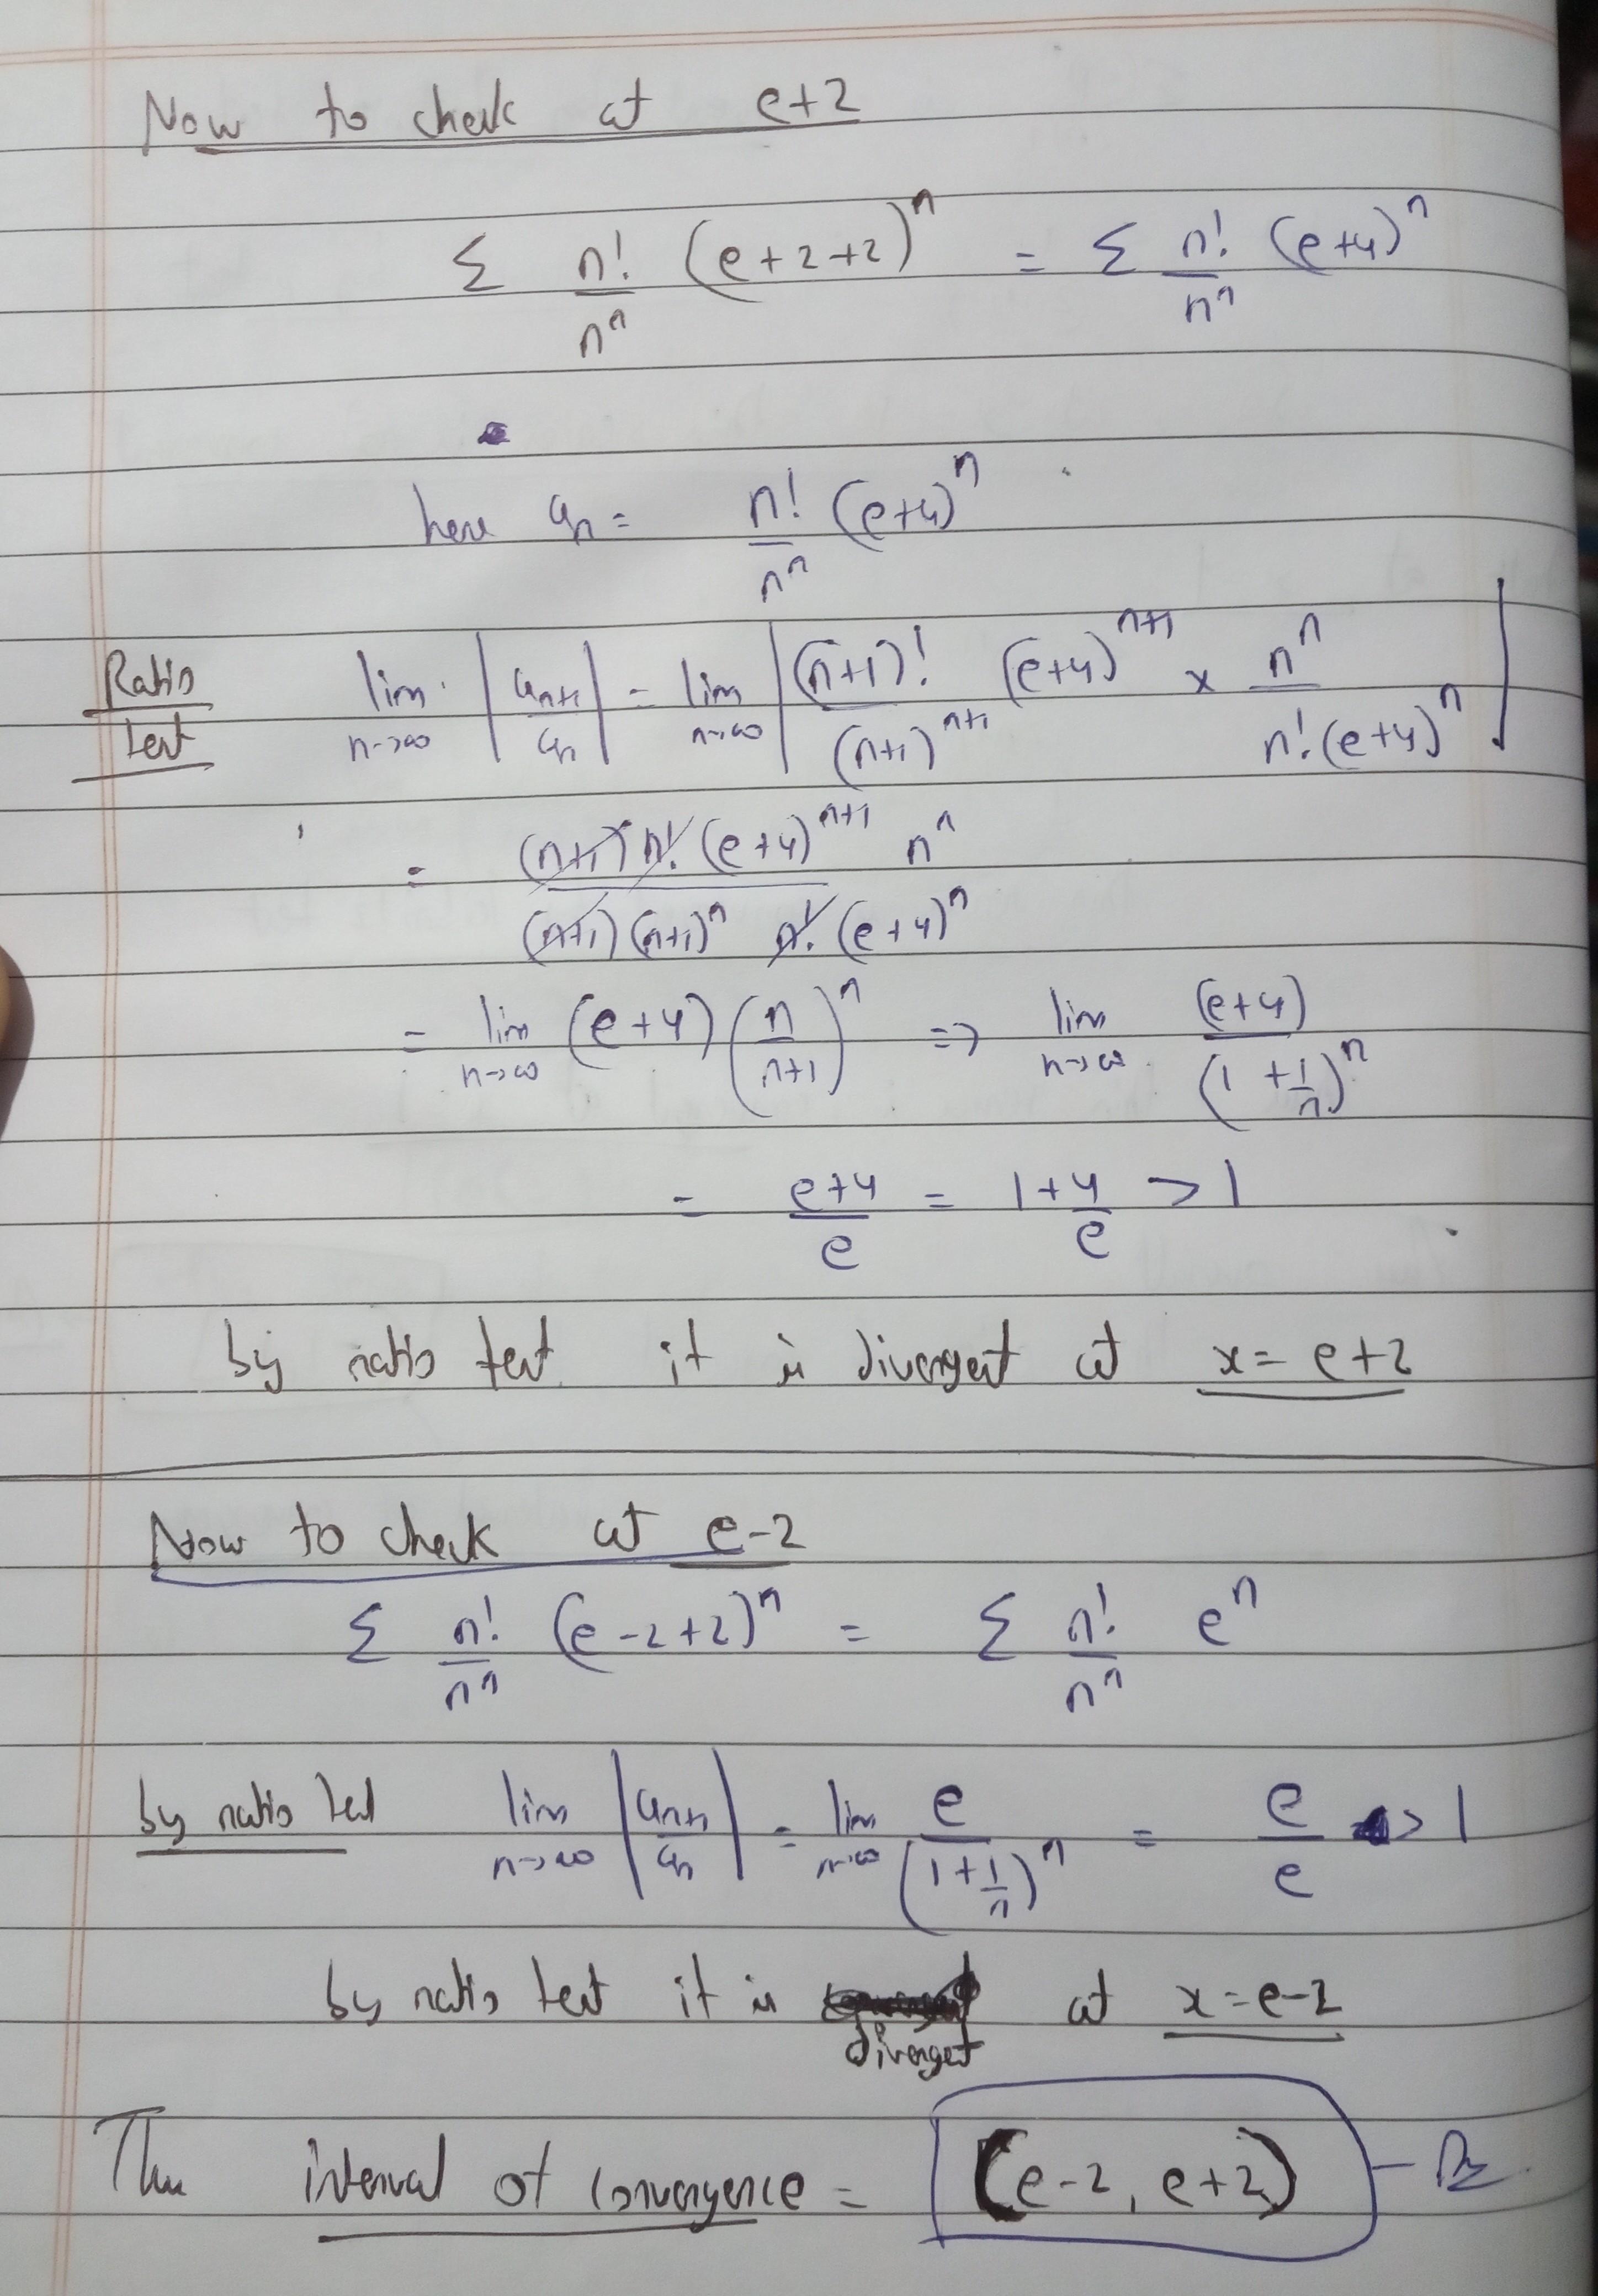 Now to check at e+2
Σ n!/n^n (e+2+2)^n = Σ n!/n^n (e+4)^n
here a_n = n!/n^n (e+4)^n
Ratio test lim n→∞ |a_{n+1}/a_n| = lim n→∞ |(n+1)! (e+4)^{n+1}/(n+1)^{n+1} × n^n/n!(e+4)^n|
= (n+1) n! (e+4)^{n+1} n^n / (n+1)(n+1)^n n! (e+4)^n
= lim n→∞ (e+4) (n/n+1)^n => lim n→∞ (e+4)/(1+1/n)^n
= e+4/e = 1+4/e > 1
by ratio test it is divergent at x = e+2
Now to check at e-2
Σ n!/n^n (e-2+2)^n = Σ n!/n^n e^n
by ratio test lim n→∞ |a_{n+1}/a_n| = lim n→∞ e/(1+1/n)^n = e/e > 1
by ratio test it is divergent at x=e-2
interval of convergence = (e-2, e+2)